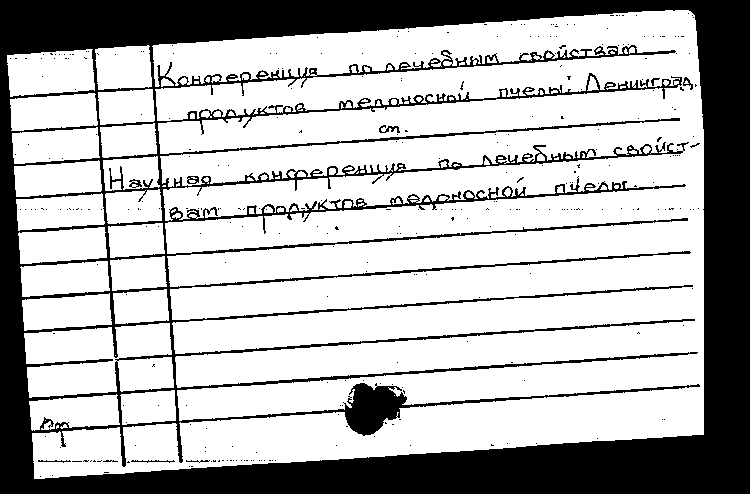 Конференция по лечебным свойствам
продуктов медоносной пчелы: Ленинград.
см.
Научная конференция по лечебным свойст-
вам продуктов медоносной пчелы.